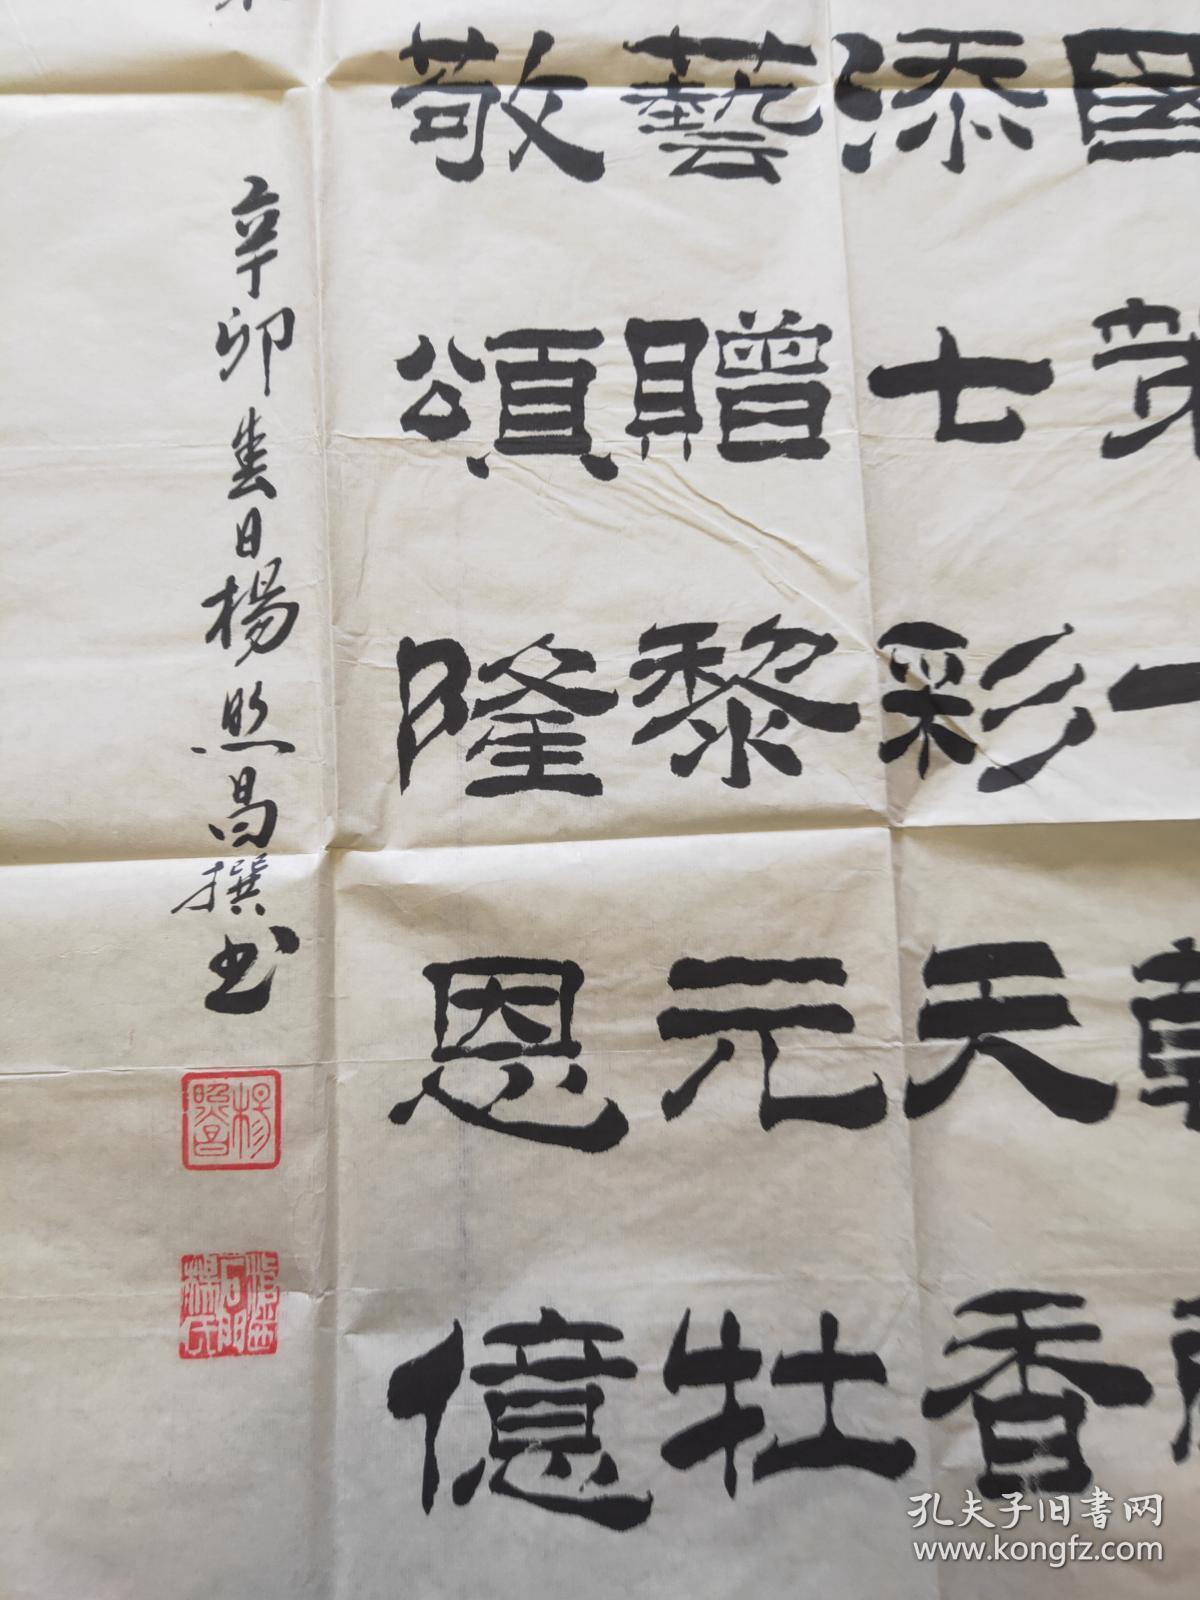 國
添七彩天香
藝贈黎元牡
敬頌隆恩億
辛卯春日楊照昌撰书
孔夫子旧书网
www.kongfz.com